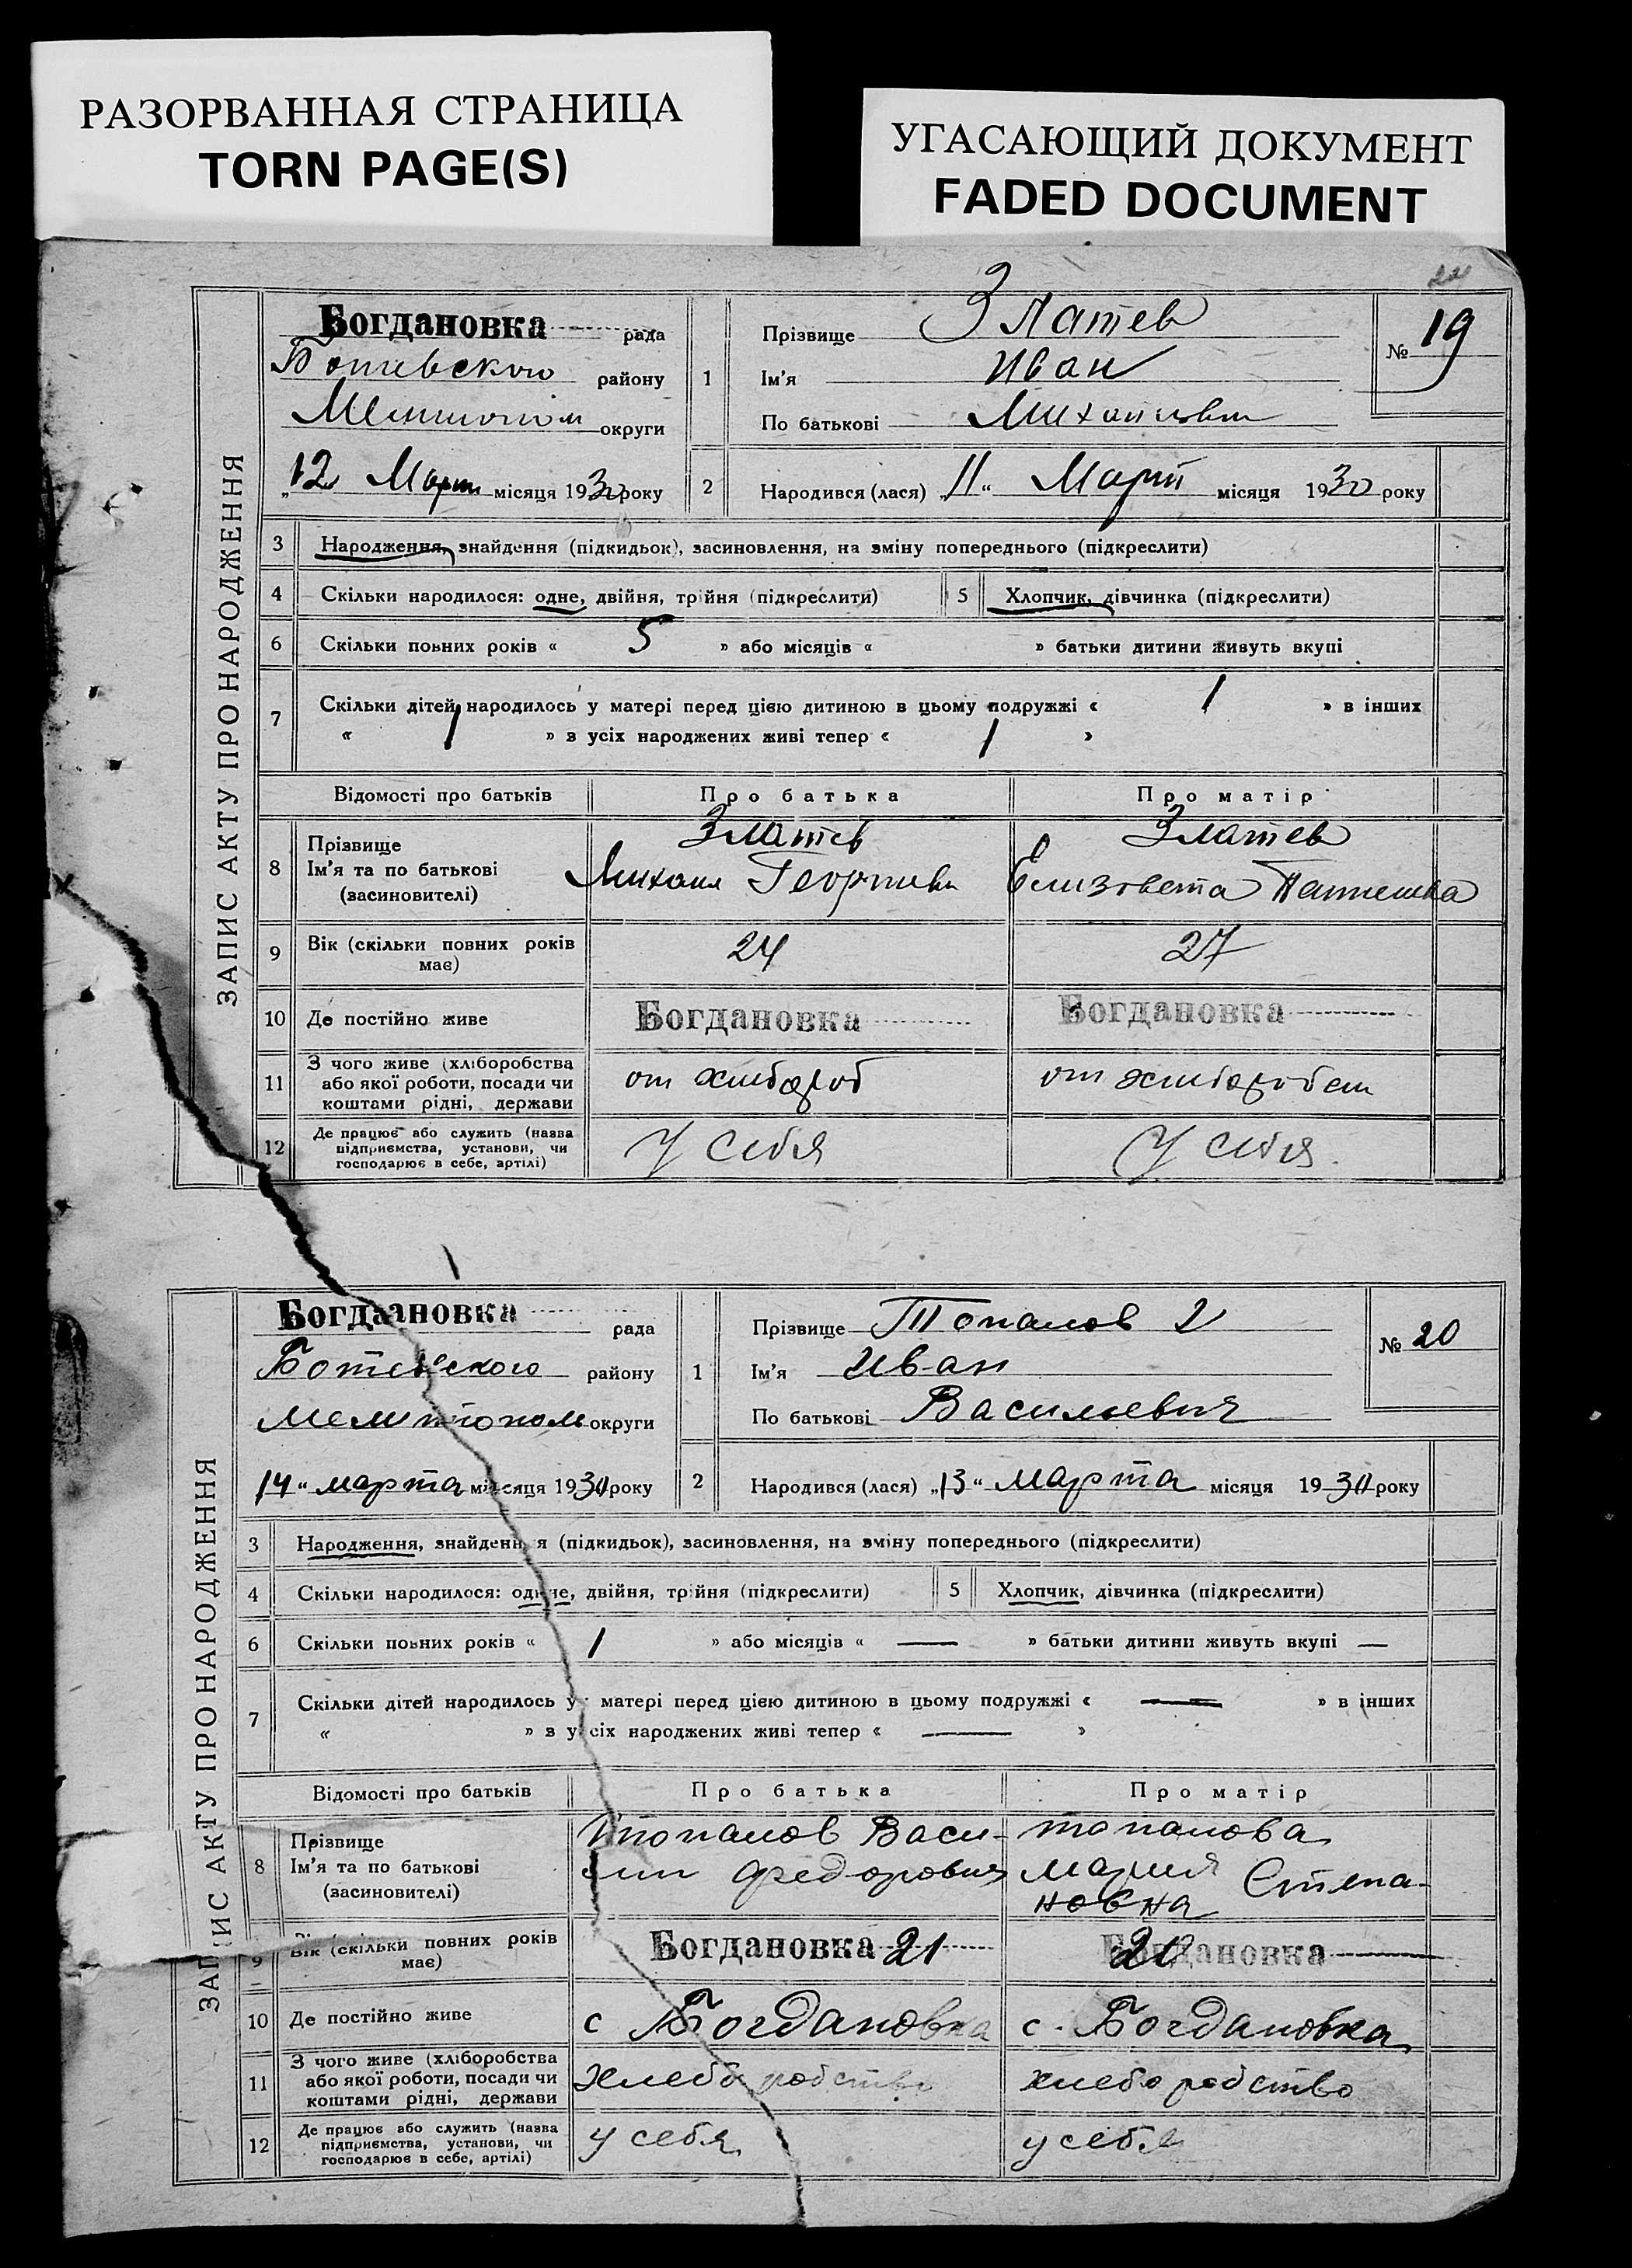 РАЗОРВАННАЯ СТРАНИЦА
TORN PAGE(S)
УГАСАЮЩИЙ ДОКУМЕНТ
FADED DOCUMENT
ЗАПИС АКТУ ПРО НАРОДЖЕННЯ
Богдановка рада
Ботевского району
округи
„12 Март місяця 1930 року
1
Прізвище Златев
Ім'я Иван
По батькові
№ 19
2
Народився (лася) „11“ Март місяця 1930 року
3 Народження, знайдення (підкидьок), засиновлення, на зміну попереднього (підкреслити)
4 Скільки народилося: одне, двійня, трійня (підкреслити) 5 Хлопчик, дівчинка (підкреслити)
6 Скільки повних років « 5 » або місяців « » батьки дитини живуть вкупі
7 Скільки дітей народилось у матері перед цією дитиною в цьому подружжі « 1 » в інших
« 1 » з усіх народжених живі тепер « 1 »
Відомості про батьків Про батька Про матір
8 Прізвище Златев Златев
Ім'я та по батькові Михаил Елизовета
(засиновителі)
9 Вік (скільки повних років має) 24 27
10 Де постійно живе Богдановка Богдановка
11 З чого живе (хліборобства
або якої роботи, посади чи
коштами рідні, держави
от хлибороб от
12 Де працює або служить (назва
підприємства, установи, чи
господарює в себе, артілі)
У себя У себя
ЗАПИС АКТУ ПРО НАРОДЖЕННЯ
Богдановка рада
Ботевского району
Мелитополь округи
14“ марта місяця 1930 року
1
Прізвище Топалов 2
Ім'я Иван
По батькові Васильевич
№ 20
2
Народився (лася) „13“ марта місяця 1930 року
3 Народження, знайдення (підкидьок), засиновлення, на зміну попереднього (підкреслити)
4 Скільки народилося: одине, двійня, трійня (підкреслити) 5 Хлопчик, дівчинка (підкреслити)
6 Скільки повних років « 1 » або місяців « — » батьки дитини живуть вкупі —
7 Скільки дітей народилось у матері перед цією дитиною в цьому подружжі « — » в інших
« » в усіх народжених живі тепер « — »
Відомості про батьків Про батька Про матір
8 Прізвище Топалов Васи- топалова
Ім'я та по батькові Федорович мария Степа-
(засиновителі) новна
9 Вік (скільки повних років має) Богдановка 21 Богдановка 20
10 Де постійно живе с Богдановка с. Богдановка
11 З чого живе (хліборобства
або якої роботи, посади чи
коштами рідні, держави
хлеборобство хлеборобство
12 Де працює або служить (назва
підприємства, установи, чи
господарює в себе, артілі)
у себя у себя